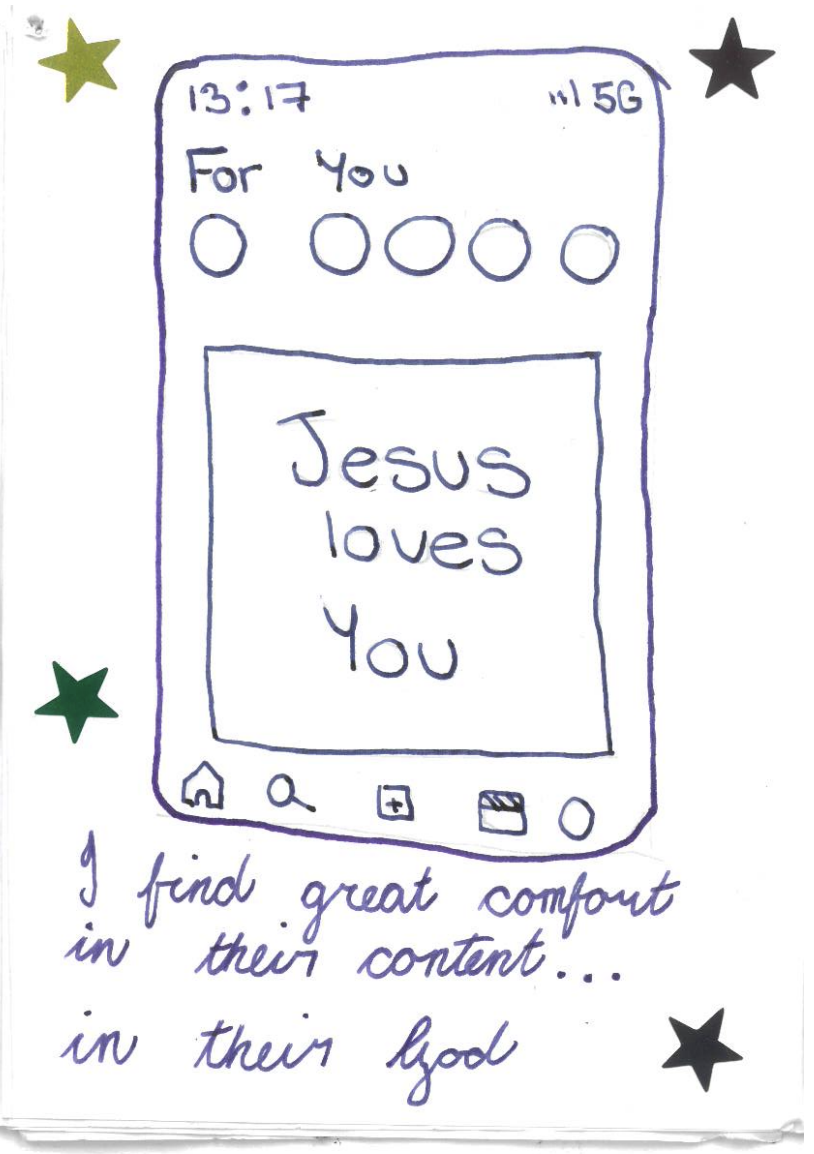 13:17 5G
For You
Jesus
loves
You
I find great comfort
in their content...
in their God